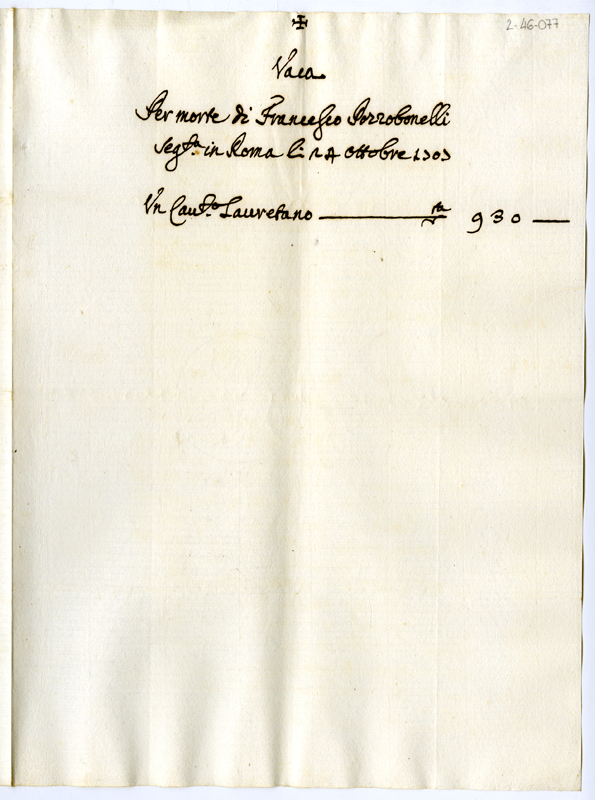 2-46-077
Vaca
Per morte di Francesco Pozzobonelli
seg.ta in Roma li 24 Ottobre 1707
Un Cau.to Lauretano
930